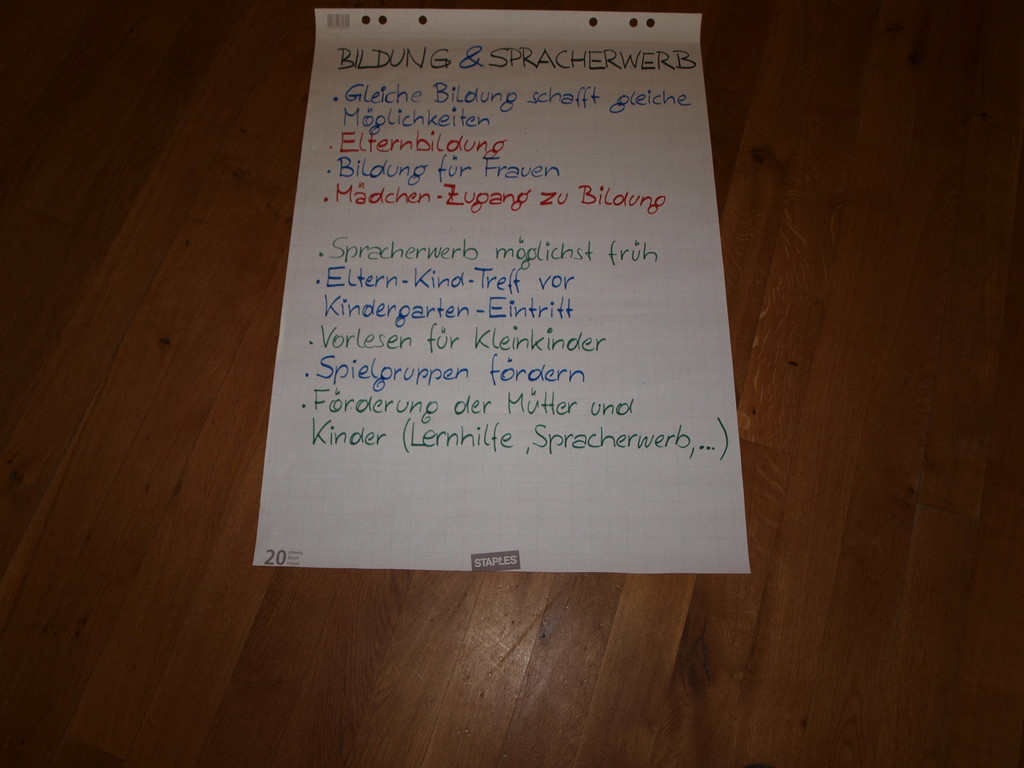 BILDUNG & SPRACHERWERB
• Gleiche Bildung schafft gleiche
Möglichkeiten
• Elternbildung
• Bildung für Frauen
• Mädchen-Zugang zu Bildung
• Spracherwerb möglichst früh
• Eltern-Kind-Treff vor
Kindergarten-Eintritt
• Vorlesen für Kleinkinder
• Spielgruppen fördern
• Förderung der Mütter und
Kinder (Lernhilfe, Spracherwerb,...)
20
STAPLES